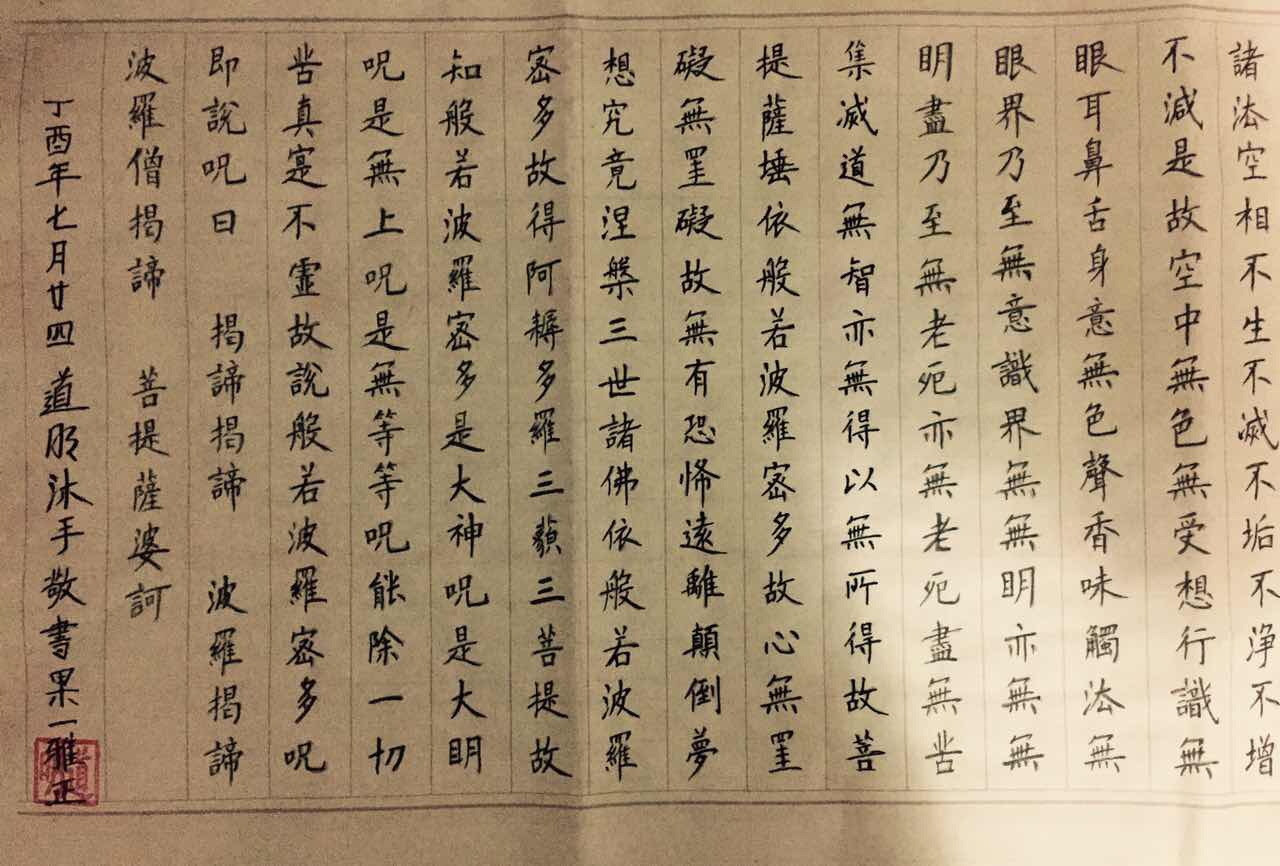 諸法空相不生不滅不垢不淨不增
不減是故空中無色無受想行識無
眼耳鼻舌身意無色聲香味觸法無
眼界乃至無意識界無無眀亦無無
眀盡乃至無老死亦無老死盡無苦
集滅道無智亦無得以無所得故菩
提薩埵依般若波羅密多故心無罣
礙無罣礙故無有恐怖遠離顛倒夢
想究竟涅槃三世諸佛依般若波羅
密多故得阿耨多羅三藐三菩提故
知般若波羅密多是大神呪是大眀
呪是無上呪是無等等呪能除一切
苦真寔不虛故說般若波羅密多呪
即說呪曰 揭諦揭諦 波羅揭諦
波羅僧揭諦 菩提薩婆訶
丁酉年七月廿四 道明沐手敬書果一雅正